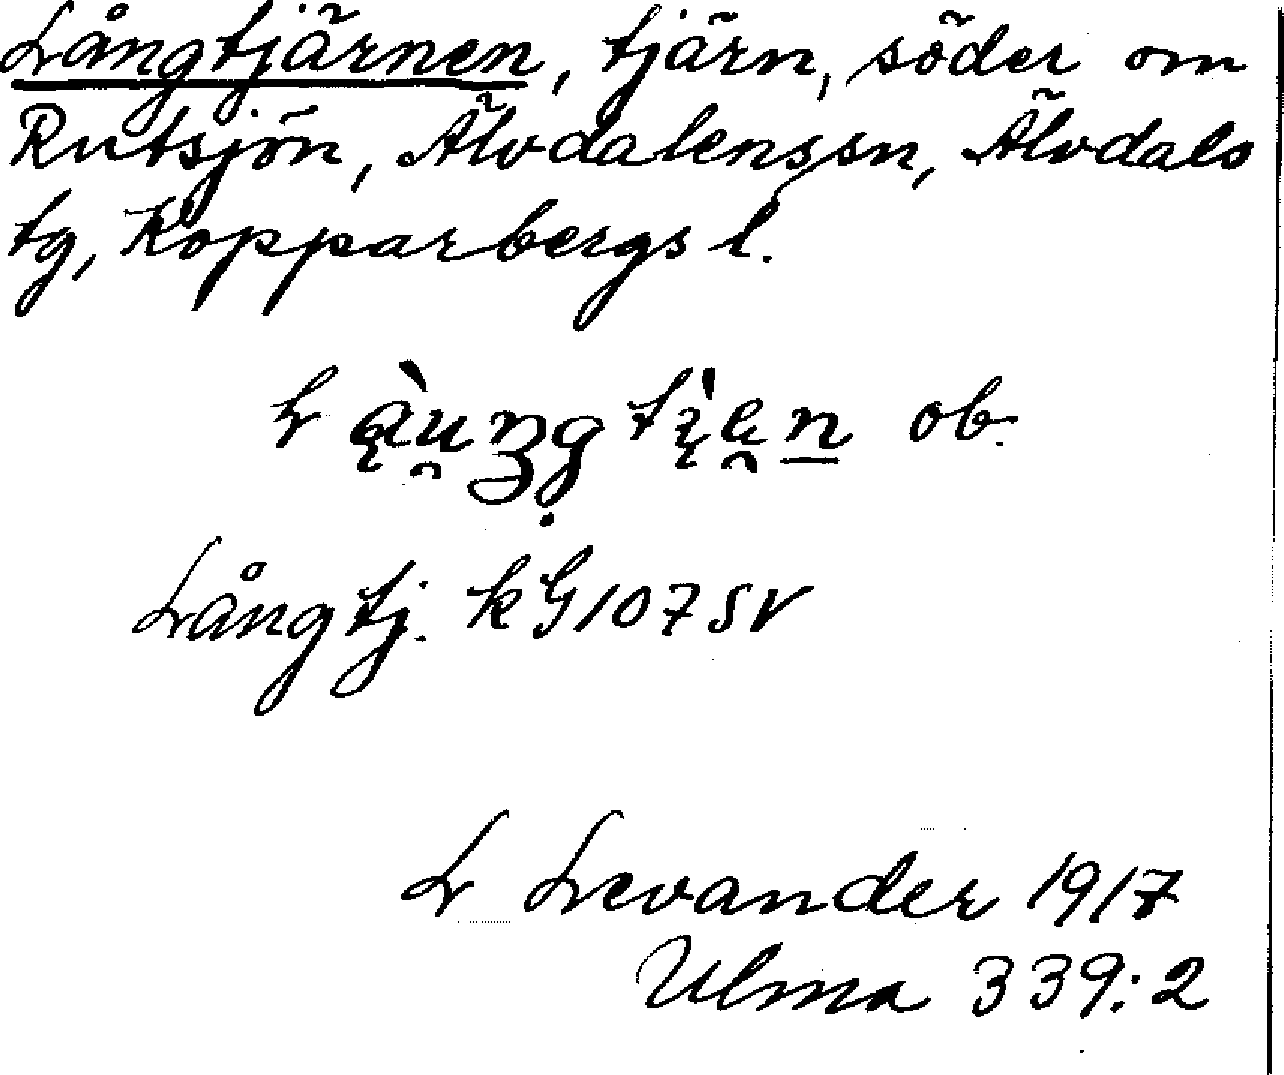 Långtjärnen, tjärn, söder om
Rutsjön, Älvdalens sn, Älvdals
tg, Kopparbergs l.
ob.
Långtj. kG107SV
L Levander 1917
Ulma 339:2